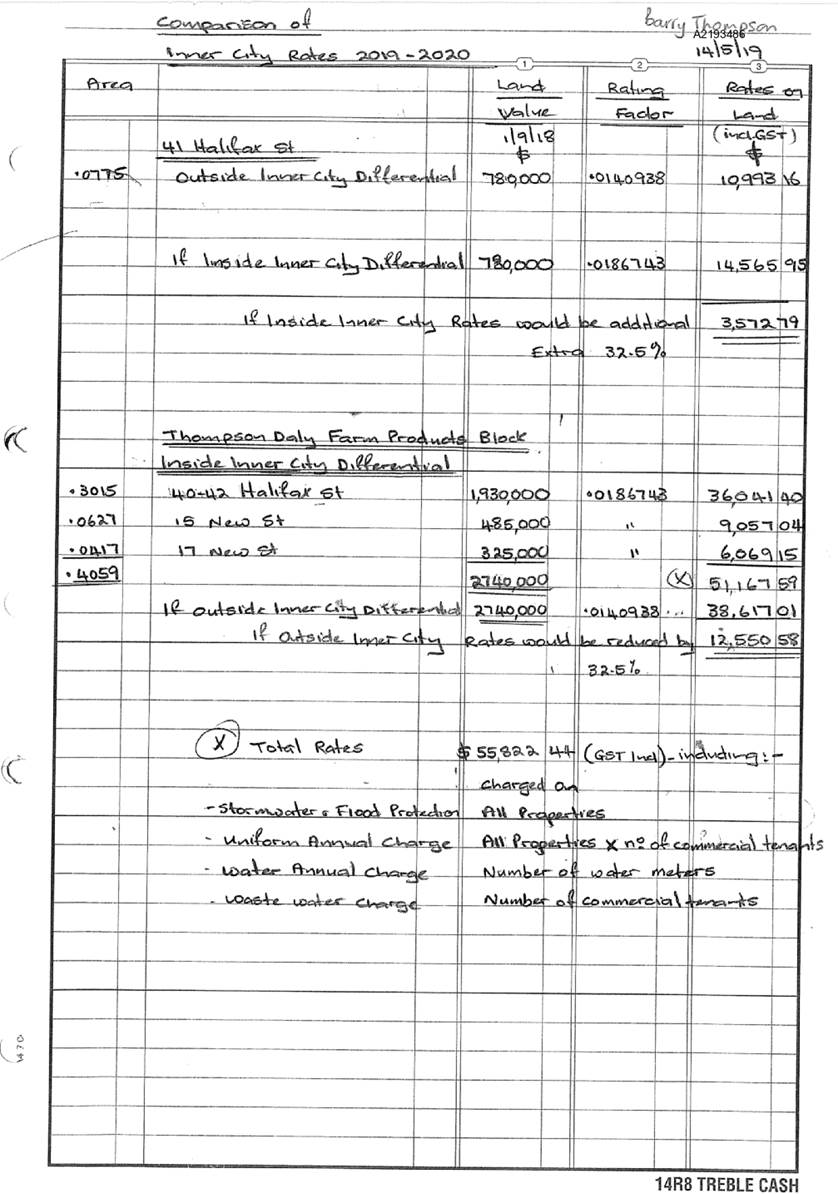 Comparison of
Barry Thompson
A2193486
Inner City Rates 2019-2020
14/5/19
1 2 3
Area Land Rating Rates on
Value Factor Land
1/9/18 (incl.GST)
41 Halifax St $ $
.0775 Outside Inner City Differential 780,000 .0140938 10,993 16
If Inside Inner City Differential 780,000 .0186743 14,565 95
If Inside Inner City Rates would be additional 3,572 79
Extra 32.5%
Thompson Daly Farm Products Block
Inside Inner City Differential
.3015 40-42 Halifax St 1,930,000 .0186743 36,041 40
.0627 15 New St 485,000 " 9,057 04
.0417 17 New St 325,000 " 6,069 15
.4059 2740,000 (X) 51,167 59
If Outside Inner City Differential 2740,000 .0140938 ... 38,617 01
If Outside Inner City Rates would be reduced by 12,550 58
32.5%
(X) Total Rates $55,822 44 (GST Incl)-including:-
Charged on
- Stormwater & Flood Protection All Properties
- Uniform Annual Charge All Properties x no of commercial tenants
- Water Annual Charge Number of water meters
- Waste water Charge Number of commercial tenants
14R8 TREBLE CASH